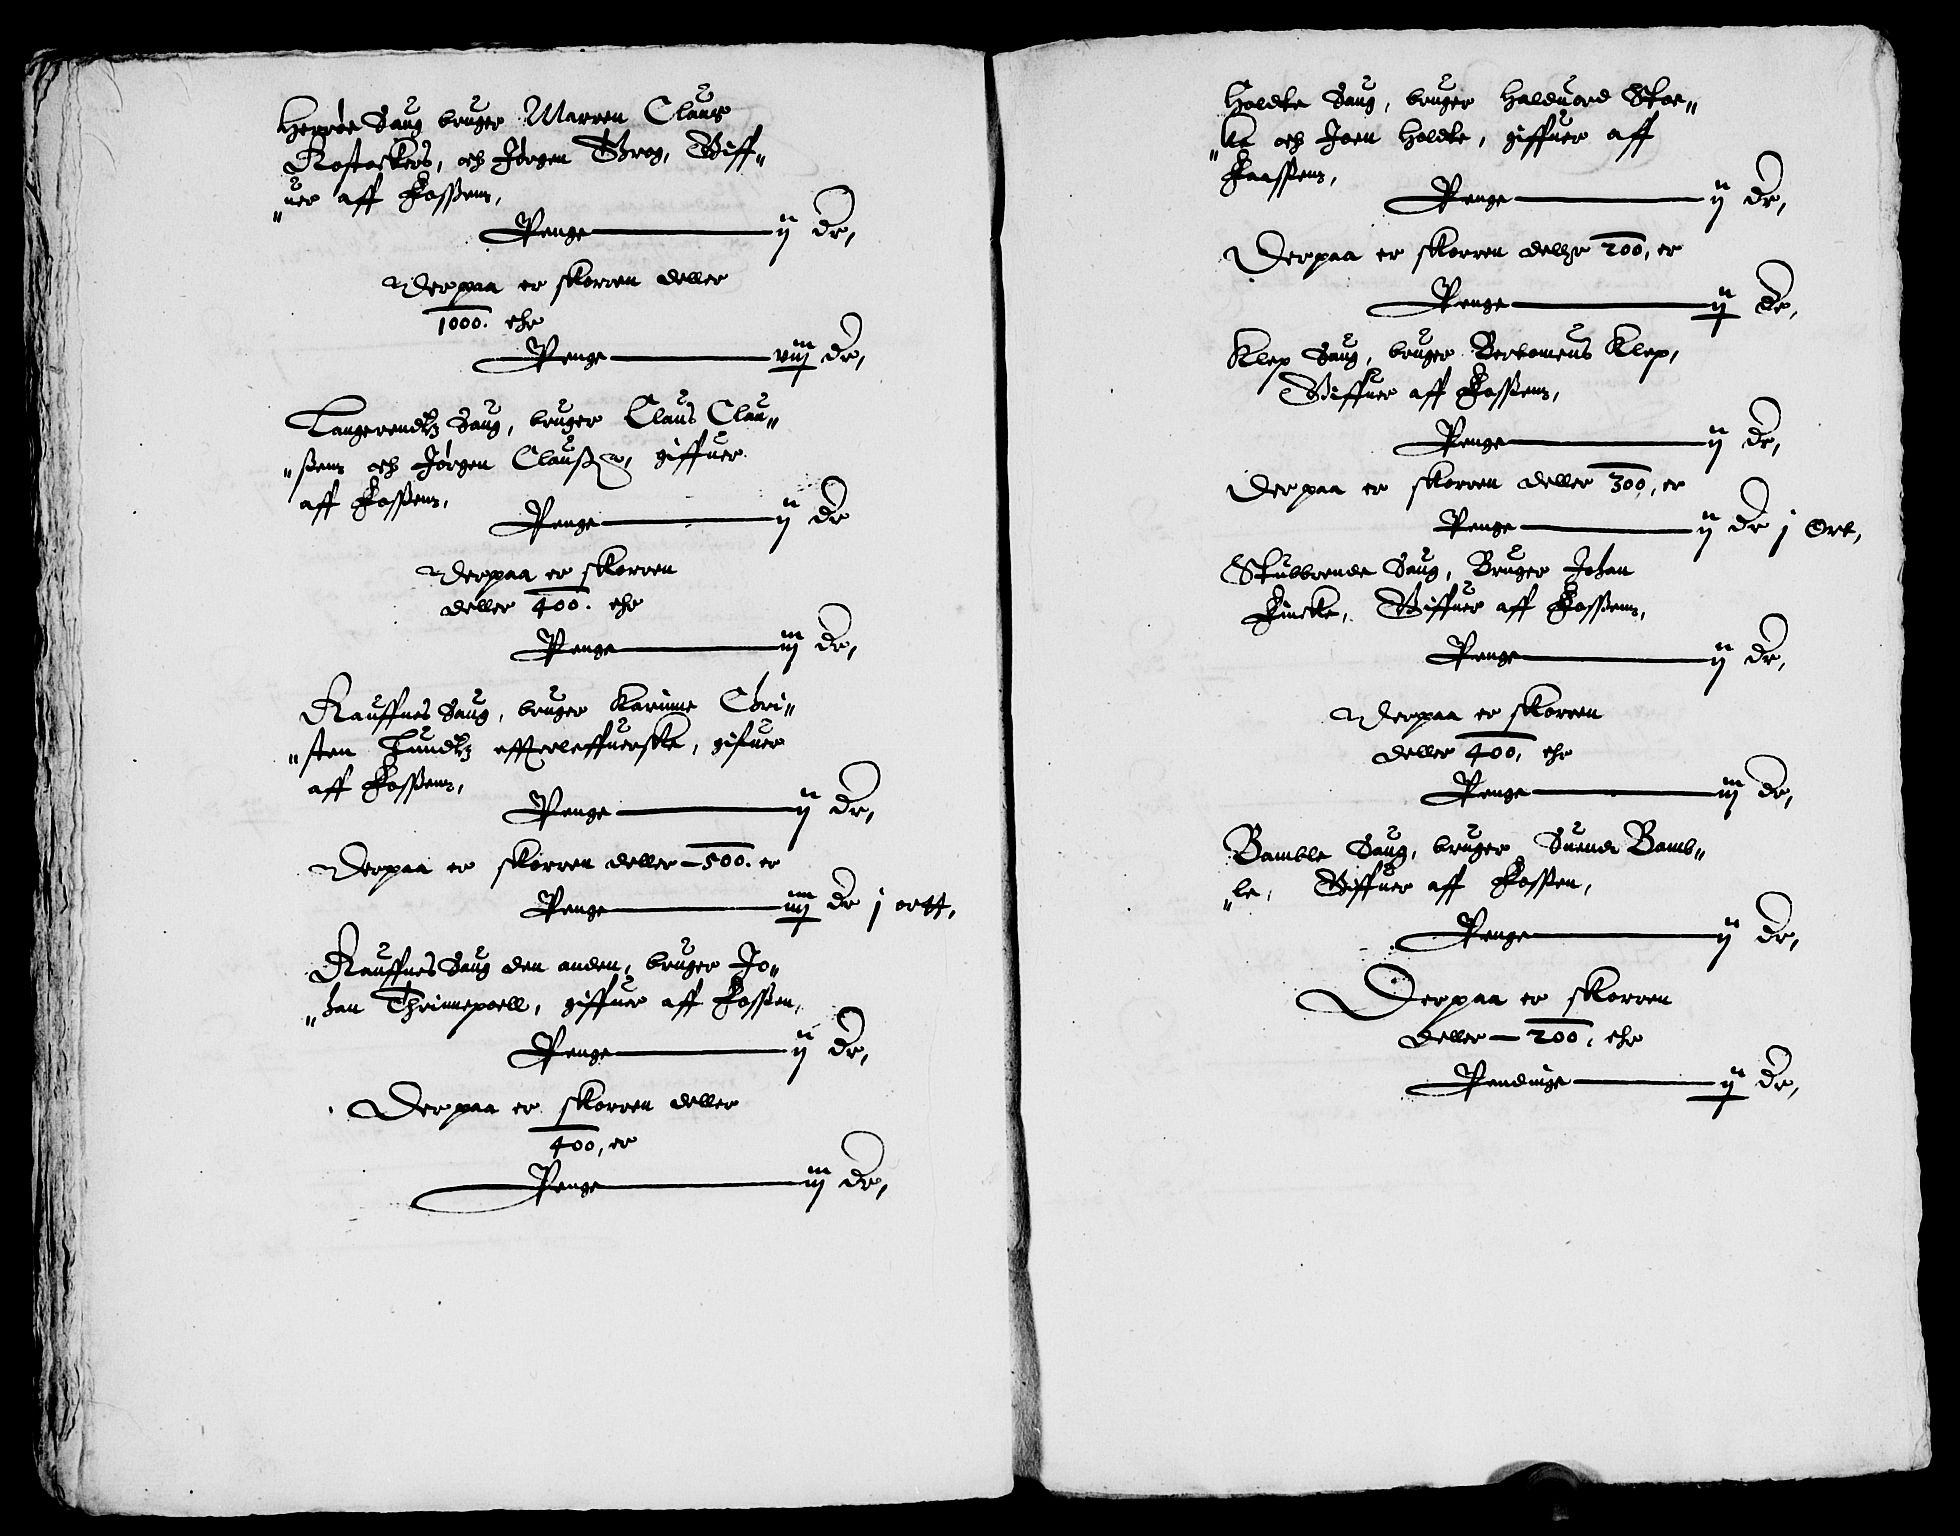 Herrøe Saug bruger Marren Claus
Rostockers, och Jørgen Throg, Giff„
„uer aff Fossenn,
Penge ij dr,
Derpaa er skorren deller
1000. ehr
Penge viij dr,
Langerendtz Saug, bruger Claus Clau„
„ßenn och Jørgen Claußen, giffuer
aff Fossenn,
Penge ij dr
Derpaa er skorren
deller 400. ehr
Penge iij dr,
Rauffnes Saug, bruger Karinne Chri„
„sten Lundtz effterleffuerske, gifuer
aff Fossenn,
Penge ij dr,
Derpaa er skorren deller 500. er
Penge iiij dr j ortt,
Rauffnes Saug den anden, bruger Jo„
„han Thrinnepoell, giffuer aff Fossen,
Penge ij dr,
Derpaa er skorren deller
400, er
Penge iij dr,
Holdte Saug, bruger Halduord Stoc„
„ke och Joen Holdte, giffuer aff
Faassenn,
Penge ij dr,
Derpaa er skorren deller 200, er
Penge ij dr,
Klep Saug, bruger Bertomeus Klep,
Giffuer aff Fossenn,
Penge ij dr,
Derpaa er skorren deller 300, er
Penge ij dr j Ort,
Stubbrende Saug, Bruger Johan
Fincke, Giffuer aff Fossenn,
Penge ij dr,
Derpaa er skorren
deller 400, ehr
Penge iij dr,
Bamble Saug, bruger Suend Bamb„
„le, Giffuer aff Fossen,
Penge ij dr,
Derpaa er skorren
deller 200, ehr
Pendinge ij dr,